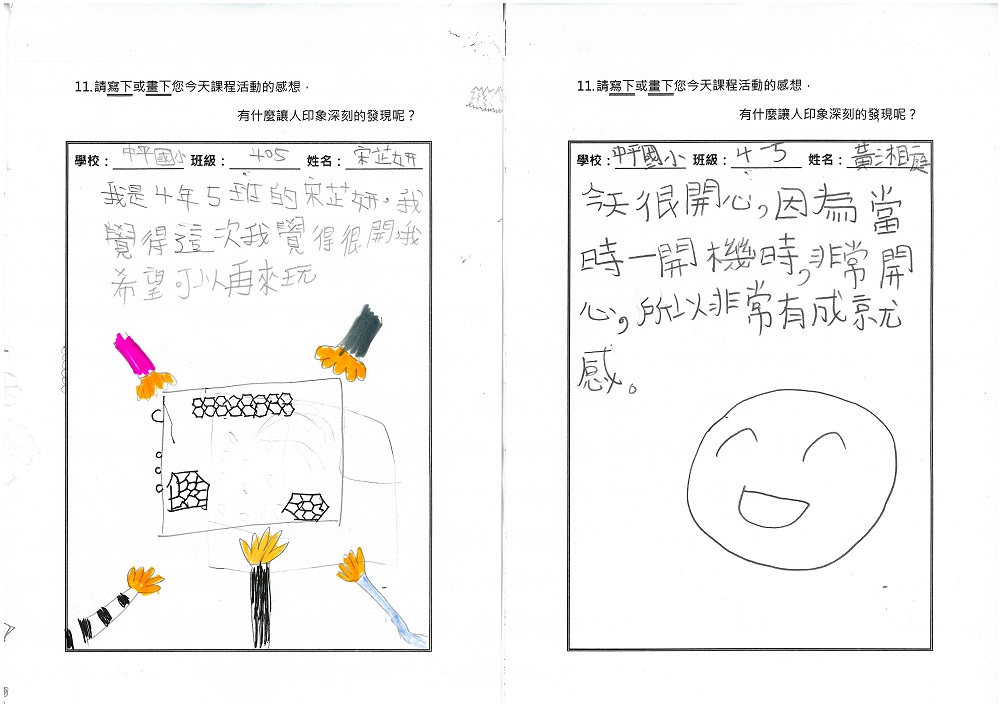 11.請寫下或畫下您今天課程活動的感想，
有什麼讓人印象深刻的發現呢？
學校：中平國小 班級：405 姓名：宋芷妍
我是4年5班的宋芷妍。我
覺得這次我覺得很開，我
希望可以再來玩
11.請寫下或畫下您今天課程活動的感想，
有什麼讓人印象深刻的發現呢？
學校：中平國小 班級：4-5 姓名：黃湘庭
今天很開心，因為當
時一開機時，非常開
心，所以非常有成就
感。